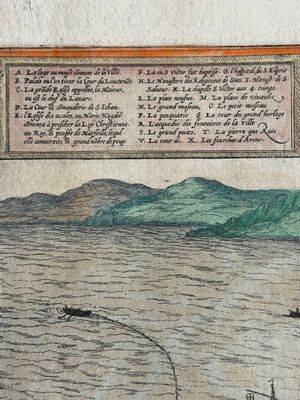 A. La loge ou maisõ cõmune de la Ville.
B. Palais ou l'on tient la Cour du Lieutenãt.
C. La grãde Eglise appellee, la Maieur,
ou est le chef du Lazare.
D. La Cour & cõmanderie de S. Iehan.
E. l'Eglise des accoles, ou Marie Magdel'
cõmença à prescher la Loy Chrestienne.
au Roy, & peuple de Marseille, lequel
elle convertit, & grand nõbre du peup.
F. La ou S. Victor fut baptisé. G. l'hospital du S. Esprit
H. Le Monastere des Religieuses de Sion. I. Monast. de S.
Salueur. K. La chapelle S. Victor aux 4. cuings
L. La place neufue. M. La place de viuaulx
N. Le grand maseau, O. Le petit maseau
P. La pesquarie. Q. La tour du grand horloge
R. l'aqueduc des fonteines de la Ville
S. Le grand puits. T. La pierre que Raie
V. La tour de. X. Les fourches d'Arene.